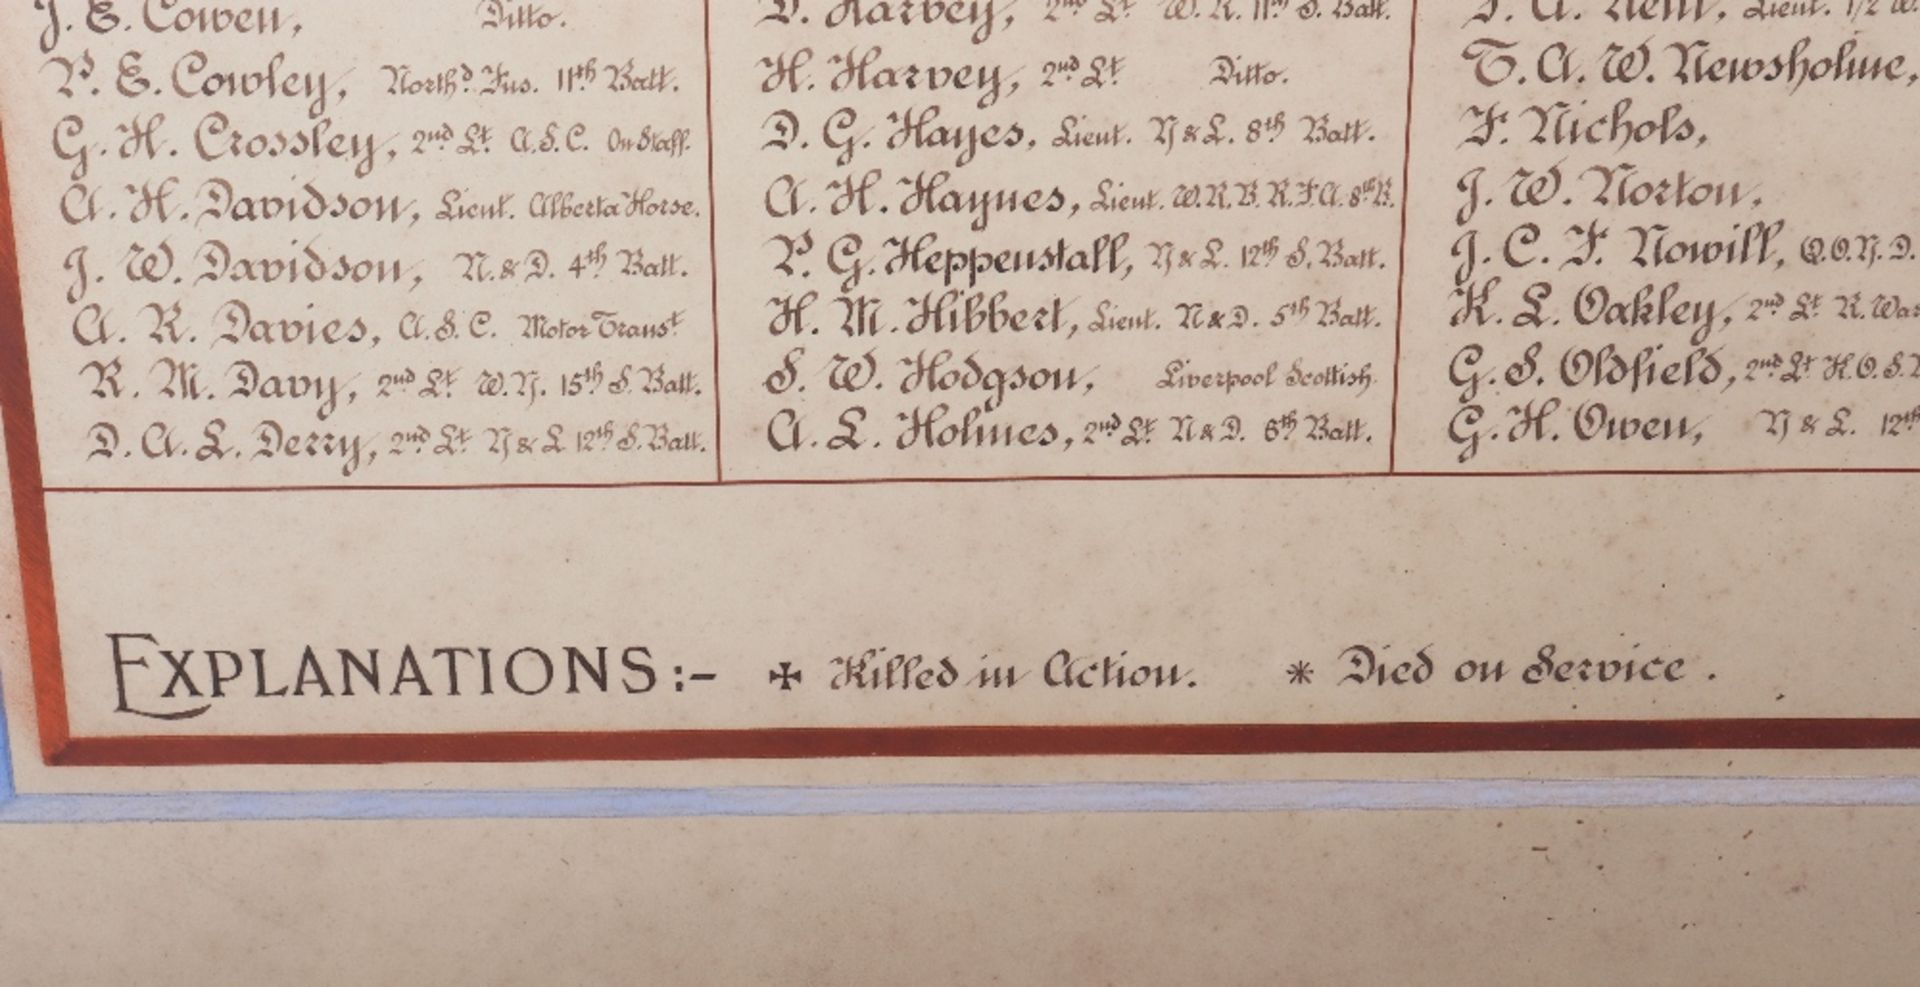 J. E. Cowen, Ditto.
P. E. Cowley, North^d. Fus. 11th Batt.
G. H. Crossley, 2nd Lt. A.S.C. On Staff.
A. H. Davidson, Lieut. Alberta Horse.
J. W. Davidson, N. & D. 4th Batt.
A. R. Davies, A.S.C. Motor Transt
R. M. Davy, 2nd Lt. W.Y. 15th S. Batt.
D. A. L. Derry, 2nd Lt. Y & L 12th S. Batt.
Harvey, 2nd Lt. W. R. 11th S. Batt.
H. Harvey, 2nd Lt. Ditto.
D. G. Hayes, Lieut. Y & L. 8th Batt.
A. H. Haynes, Lieut. W.R.B. R.F.A. 8th B.
P. G. Heppenstall, Y & L. 12th S. Batt.
H. M. Hibbert, Lieut. N & D. 5th Batt.
S. W. Hodgson, Liverpool Scottish.
A. L. Holmes, 2nd Lt. N & D. 6th Batt.
Lieut. 1/2 W.
T. A. W. Newsholme,
F. Nichols,
J. W. Norton,
J. C. F. Nowill, Q.O.Y.D.
K. L. Oakley, 2nd Lt. R. War
G. S. Oldfield, 2nd Lt. K.O.S.
G. H. Owen, Y & L. 12th
EXPLANATIONS:- ✠ Killed in Action. * Died on Service.